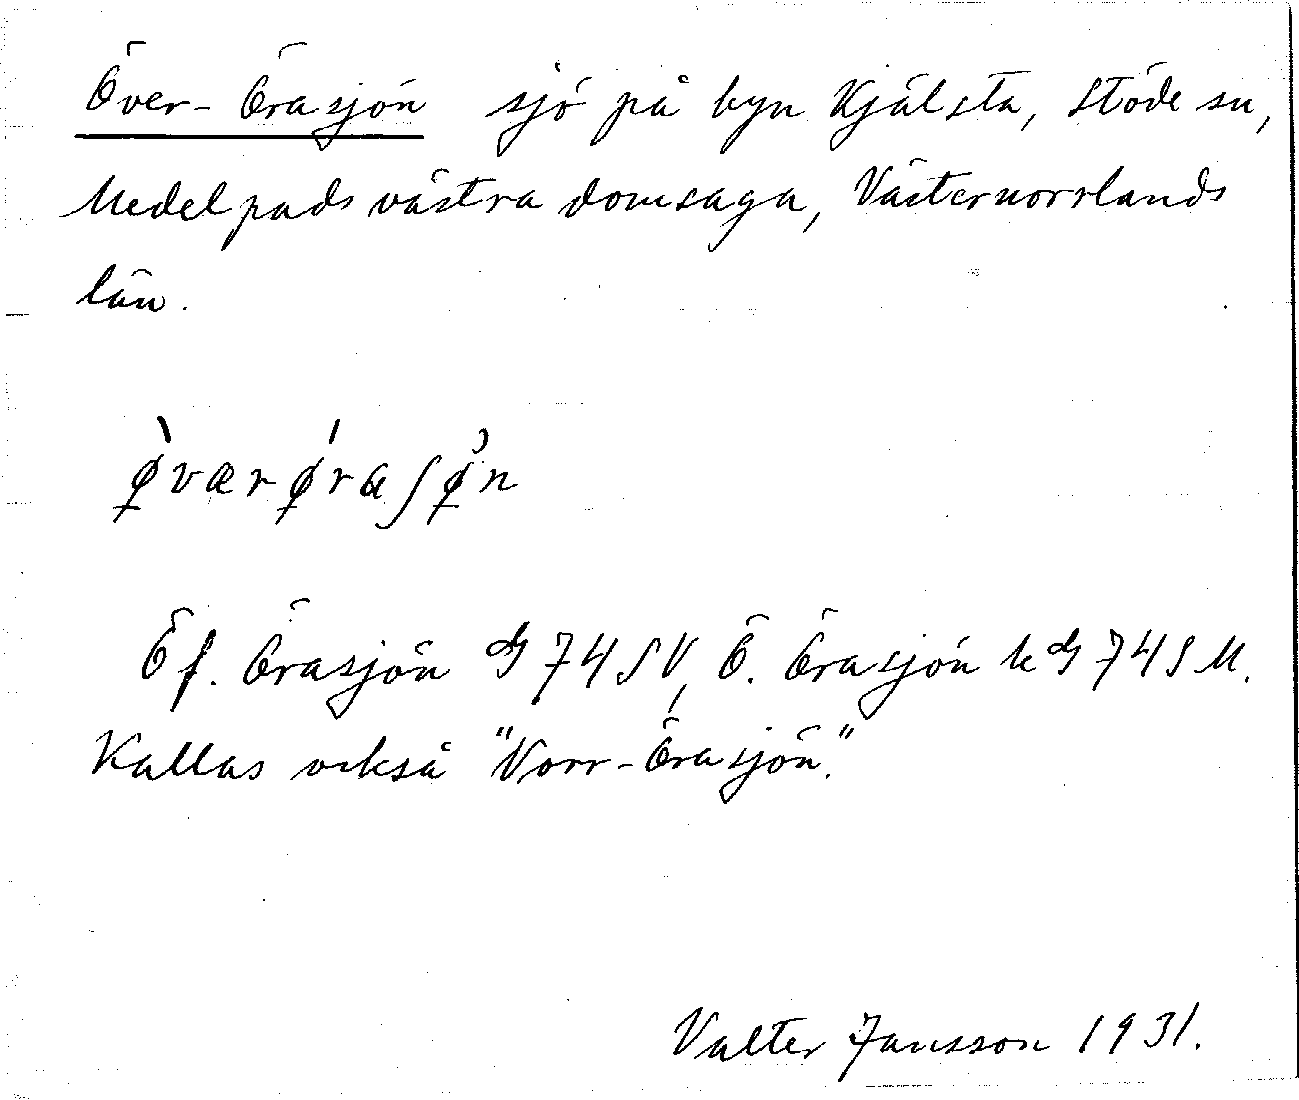 Över-Örasjön sjö på byn Kjälsta, Stöde sn,
Medelpads västra domsaga, Västernorrlands
län.
ø̀værǿraʃøn
Öf. Örasjön G 74 SV, Ö. Örasjön k G 74 S M.
Kallas också "Norr-Örasjön."
Valter Jansson 1931.